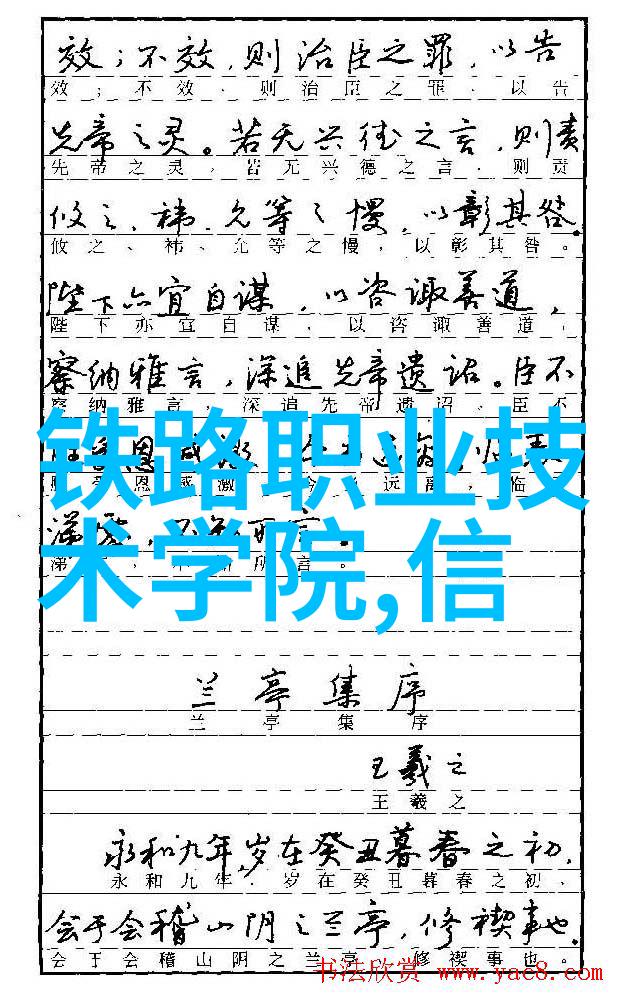 效；不效，则治臣之罪，以告
效；不效、则治臣之罪、以告
先帝之灵。若无兴德之言，则责
先帝之灵，若无兴德之言，则责
攸之、祎、允等之慢，以彰其咎。
攸之、祎、允等之慢，以彰其咎。
陛下亦宜自谋，以咨诹善道，
陛下亦宜自谋，以咨诹善道，
察纳雅言，深追先帝遗诏。臣不
察纳雅言，深追先帝遗诏。臣不
铁路职业技
恩感激
恩感激 远离，临
术学院,信
兰亭集序
兰亭集序
王羲之
王羲之
永和九年，岁在癸丑暮春之初，
永和九年，岁在癸丑暮春之初、
会于会稽山阴之兰亭，修禊事也。
会于会稽山阴之兰亭 修禊事也。
书法欣赏 www.yac8.com